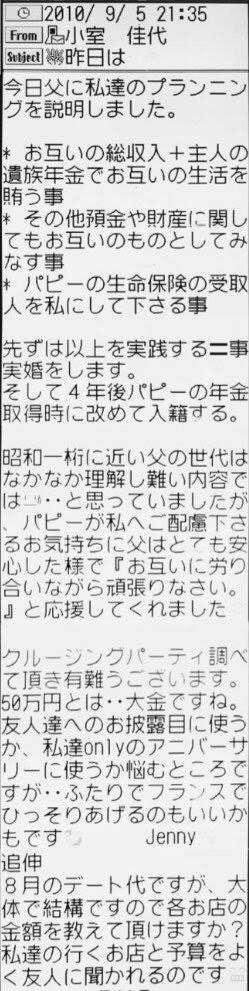 2010/ 9/ 5 21:35
From 小室 佳代
Subject 昨日は
今日父に私達のプランニン
グを説明しました。
* お互いの総収入＋主人の
遺族年金でお互いの生活を
賄う事
* その他預金や財産に関し
てもお互いのものとしてみ
なす事
* パピーの生命保険の受取
人を私にして下さる事
先ずは以上を実践する〓事
実婚をします。
そして４年後パピーの年金
取得時に改めて入籍する。
昭和一桁に近い父の世代は
なかなか理解し難い内容で
は‥と思っていましたが
、パピーが私へご配慮下さ
るお気持ちに父はとても安
心した様で『お互いに労り
合いながら頑張りなさい。
』と応援してくれました
クルージングパーティ調べ
て頂き有難うございます。
50万円とは‥大金ですね。
友人達へのお披露目に使う
か、私達onlyのアニバーサ
リーに使うか悩むところで
すが‥ふたりでフランスで
ひっそりあげるのもいいか
もです Jenny
追伸
８月のデート代ですが、大
体で結構ですので各お店の
金額を教えて頂けますか？
私達の行くお店と予算をよ
く友人に聞かれるのです